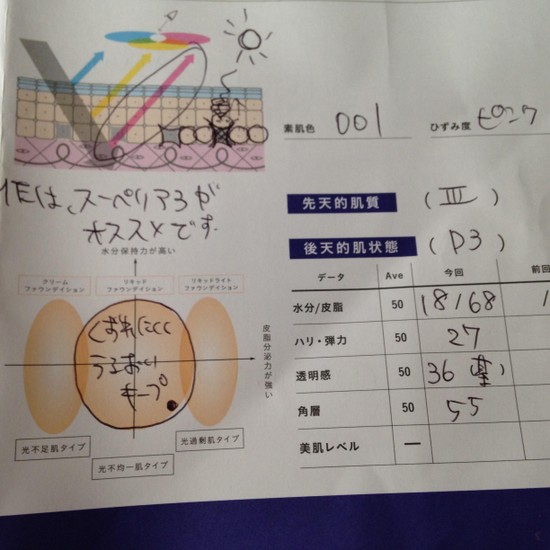 素肌色 001 ひずみ度 ピンク
先天的肌質 (Ⅲ)
後天的肌状態 (D3)
データ Ave 今回 前回
水分/皮脂 50 18/68
ハリ・弾力 50 27
透明感 50 36
角層 50 55
美肌レベル —
は、スーペリア3が
オススメです。
水分保持力が高い
クリームファウンデイション リキッドファウンデイション リキッドライトファウンデイション
くずれにくく
うるおい
キープ
皮脂分泌力が強い
光不足肌タイプ 光不均一肌タイプ 光過剰肌タイプ